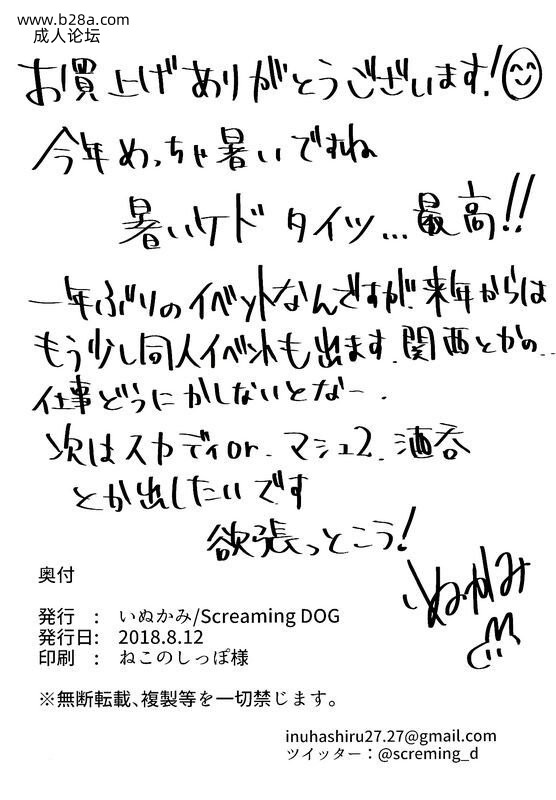 www.b28a.com
成人论坛
お買上げありがとうございます!
今年めっちゃ暑いですね
暑いケド タイツ...最高!!
一年ぶりのイベントなんですが、来年からは
もう少し同人イベントも出ます。関西とかの..
仕事どうにかしないとなー.
次はスカディor. マシュ2. 酒呑
とか出したいです
欲張っとこう!
いぬかみ
奥付
発行 : いぬかみ/Screaming DOG
発行日: 2018.8.12
印刷 : ねこのしっぽ様
※無断転載、複製等を一切禁じます。
inuhashiru27.27@gmail.com
ツイッター:@screming_d